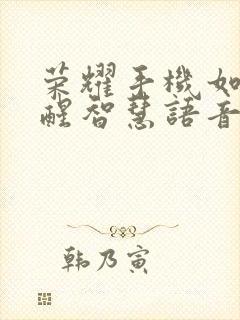 荣耀手機如
醒智慧語音
韩乃寅